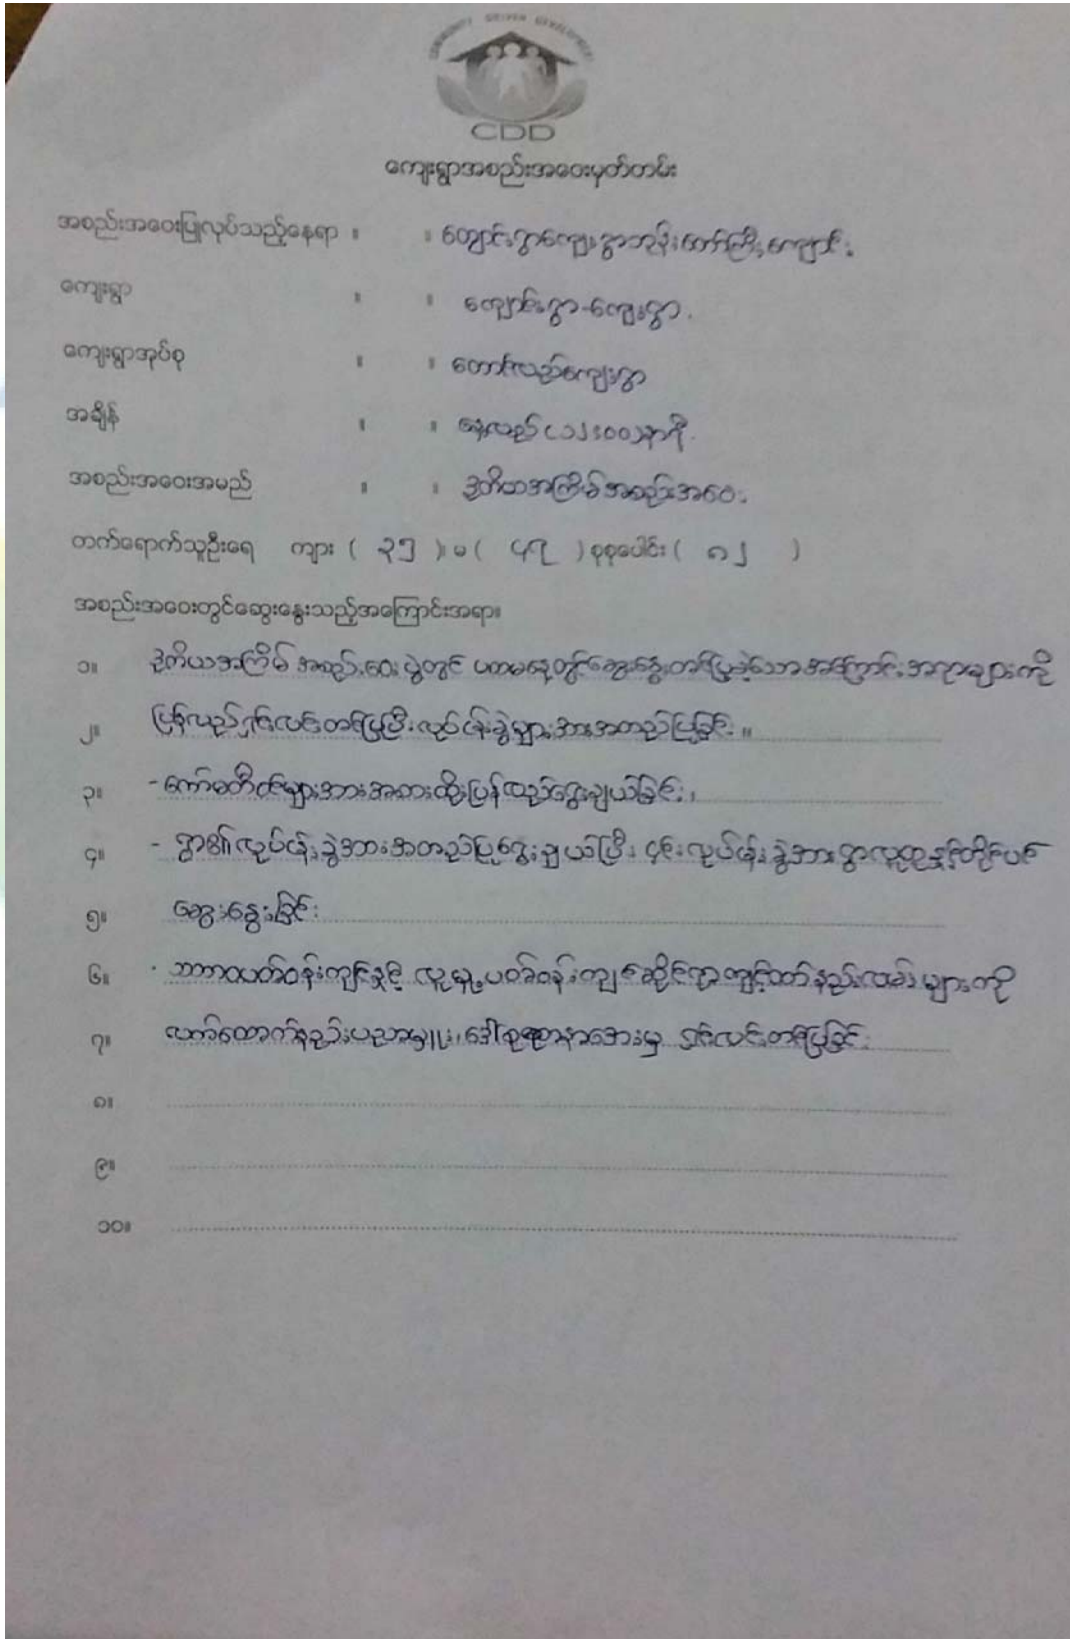 COMMUNITY DRIVEN DEVELOPMENT
CDD
ကျေးရွာအစည်းအဝေးမှတ်တမ်း
အစည်းအဝေးပြုလုပ်သည့်နေရာ ။ ။ ကျောင်းရွာကျေးရွာဘုန်းတော်ကြီးကျောင်း
ကျေးရွာ ။ ။ ကျောင်းရွာ-ကျေးရွာ
ကျေးရွာအုပ်စု ။ ။ တောင်လည်ကျေးရွာ
အချိန် ။ ။ နေ့လည် (၁၂း၀၀)နာရီ
အစည်းအဝေးအမည် ။ ။ ဒုတိယအကြိမ်အစည်းအဝေး
တက်ရောက်သူဦးရေ ကျား ( ၃၅ )၊ မ ( ၄၇ ) စုစုပေါင်း ( ၈၂ )
အစည်းအဝေးတွင်ဆွေးနွေးသည့်အကြောင်းအရာ။
၁။ ဒုတိယအကြိမ် အစည်းဝေးပွဲတွင် ပထမနေ့တွင်ဆွေးနွေးတင်ပြခဲ့သောအကြောင်းအရာများကို
၂။ ပြန်လည်ရှင်းလင်းတင်ပြပြီးလုပ်ငန်းခွဲများအားအတည်ပြုခြင်း။
၃။ -ကော်မတီဝင်များအားအစားထိုးပြန်လည်ရွေးချယ်ခြင်း၊
၄။ - ရွာ၏လုပ်ငန်းခွဲအားအတည်ပြုရွေးချယ်ပြီး ၄င်းလုပ်ငန်းခွဲအားရွာလူထုနှင့်တိုင်ပင်
၅။ ဆွေးနွေးခြင်း
၆။ - သဘာဝပတ်ဝန်းကျင်နှင့် လူမှုပတ်ဝန်းကျင်ဆိုင်ရာကျင့်ထုံးနည်းလမ်းများကို
၇။ ထောက်နည်းပညာမှူး၊ ရှင်းလင်းတင်ပြခြင်း
၈။
၉။
၁၀။